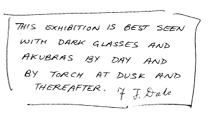 THIS EXHIBITION IS BEST SEEN
WITH DARK GLASSES AND
AKUBRAS BY DAY AND
BY TORCH AT DUSK AND
THEREAFTER. F J Dale